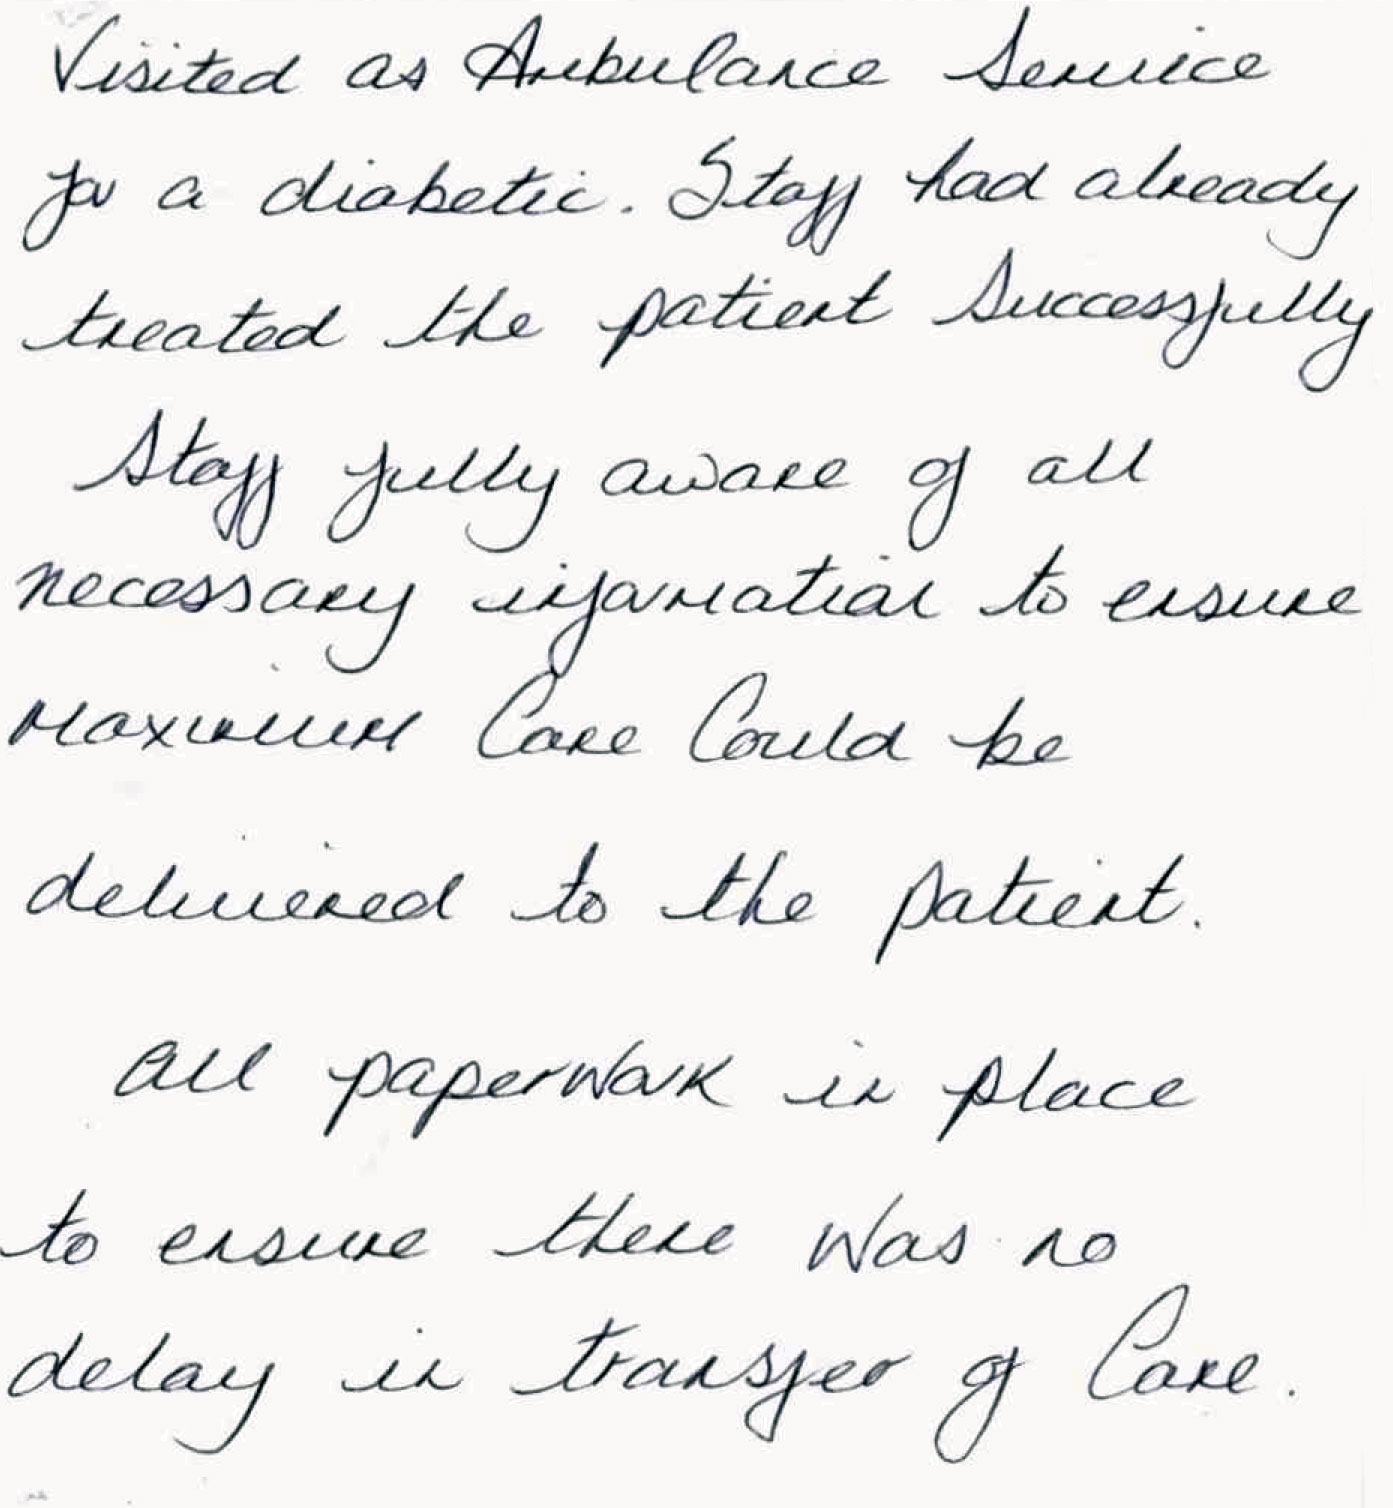 Visited as Ambulance Service
for a diabetic. Staff had already
treated the patient Successfully
Staff fully aware of all
necessary information to ensure
maximum Care Could be
delivered to the patient.
All paperwork in place
to ensure there was no
delay in transfer of Care.